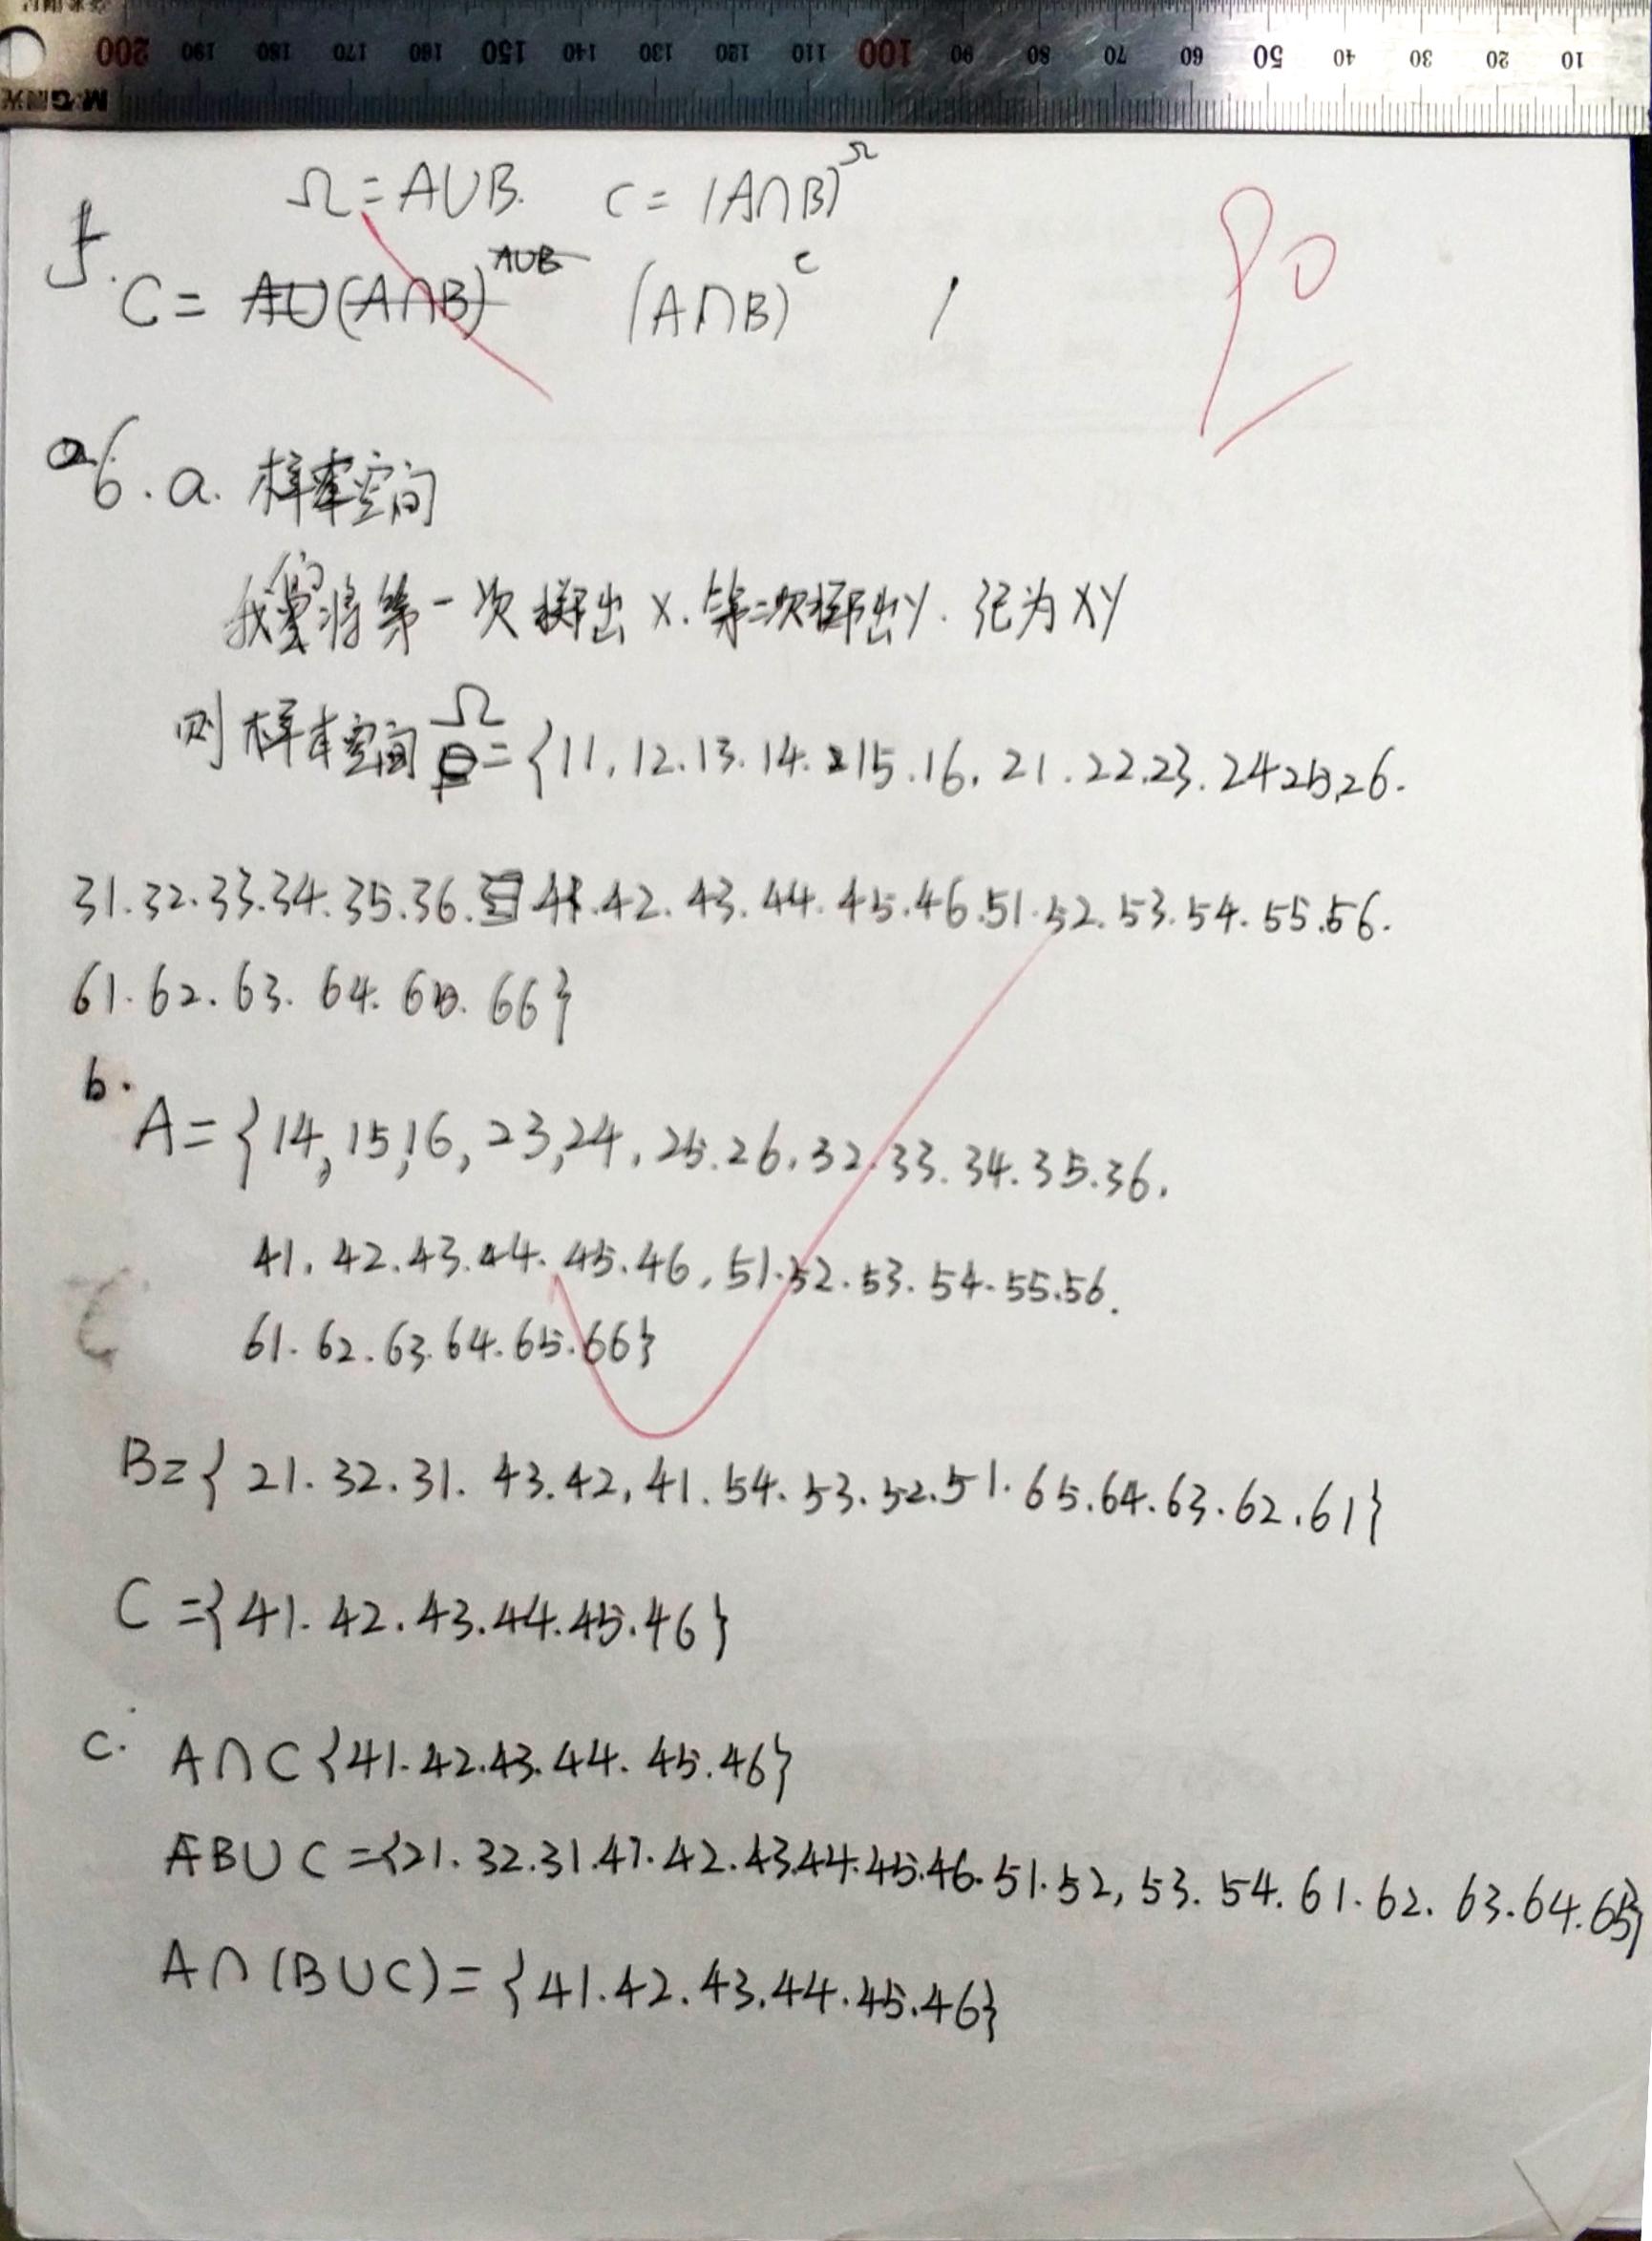 200 190 180 170 160 150 140 130 120 110 100 90 80 70 60 50 40 30 20 10
M&G晨光
Ω=A∪B. C=(A∩B)^Ω
5. C= (A∩B)^c
90
6. a. 样本空间
我们将第一次掷出X.第二次掷出Y.记为XY
则样本空间Ω={11,12.13.14.15.16,21.22.23.24 25,26.
31.32.33.34.35.36.41.42.43.44.45.46.51.52.53.54.55.56.
61.62.63.64.65.66}
b.
A={14,15,16,23,24,25.26,32.33.34.35.36.
41.42.43.44.45.46,51.52.53.54.55.56.
61.62.63.64.65.66}
B={21.32.31.43.42,41.54.53.52.51.65.64.63.62.61}
C={41.42.43.44.45.46}
c. A∩C{41.42.43.44.45.46}
B∪C={21.32.31.41.42.43.44.45.46.51.52,53.54.61.62.63.64.65}
A∩(B∪C)={41.42.43.44.45.46}